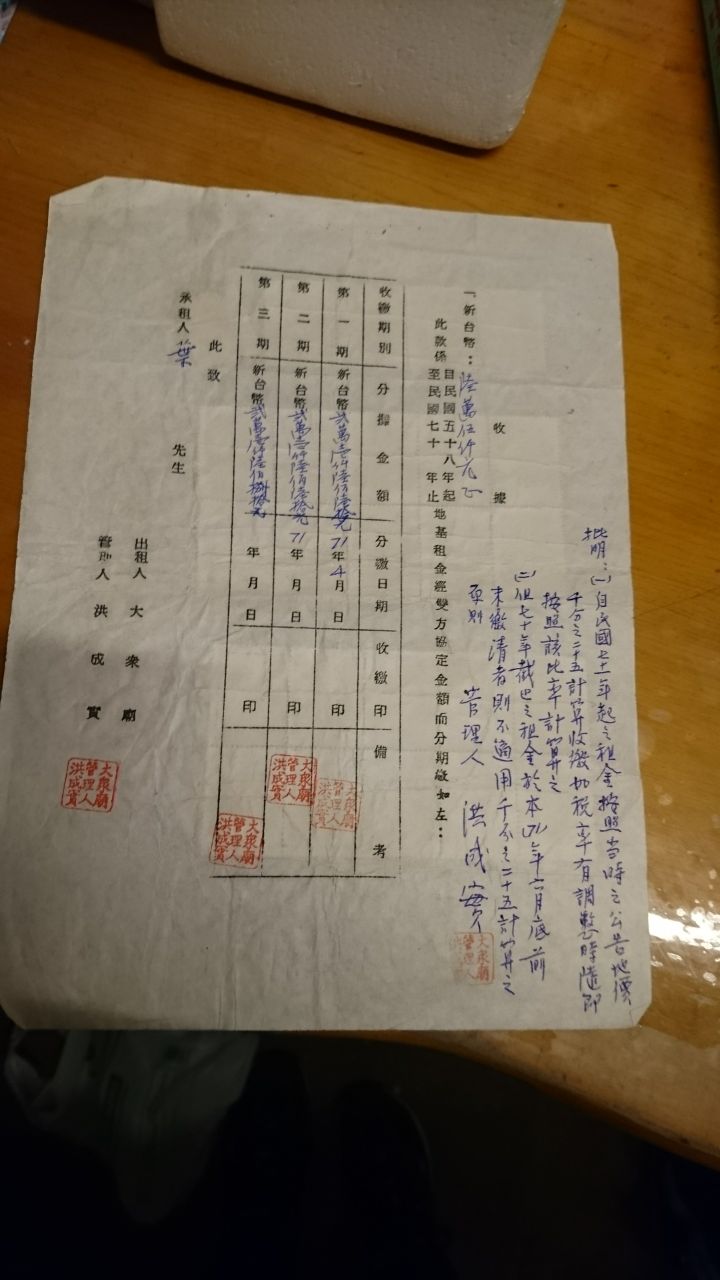 批明：(一)自民國七十一年起之租金按照當時之公告地價
千分之二十五計算收繳如稅率有調整時隨即
按照該比率計算之
(二)但七十年截止之租金於本(71)年六月底前
未繳清者則不適用千分之二十五計算之
原則
管理人 洪成寶
大眾廟管理人洪成寶
收據
「新台幣：陸萬伍仟元正
此款係自民國五十八年起至民國七十年止地基租金經雙方協定金額而分期繳如左：
收繳期別 分攤金額 分繳日期 收繳印 備考
第一期 新台幣貳萬壹仟陸佰陸拾元 71年4月 日 印
大眾廟管理人洪成寶
第二期 新台幣貳萬壹仟陸佰陸拾元 71年 月 日 印
大眾廟管理人洪成寶
第三期 新台幣貳萬壹仟陸佰捌拾元 年 月 日 印
大眾廟管理人洪成寶
此致
承租人 葉 先生
出租人 大眾廟
管理人 洪成寶
大眾廟管理人洪成寶